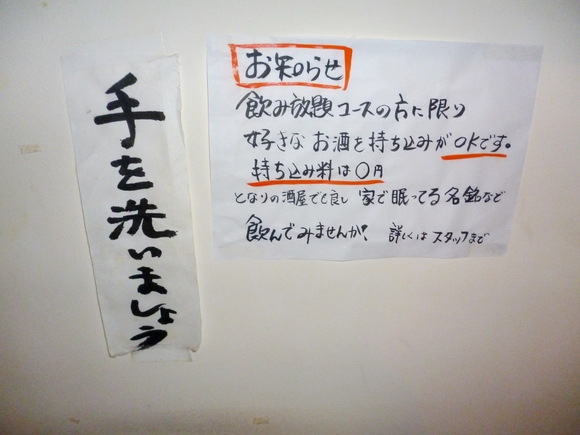 手を洗いましょう
お知らせ
飲み放題コースの方に限り
好きな お酒を持ち込みがOKです。
持ち込み料は〇円
となりの酒屋でも良し 家で眠ってる名銘など
飲んでみませんか? 詳しくはスタッフまで